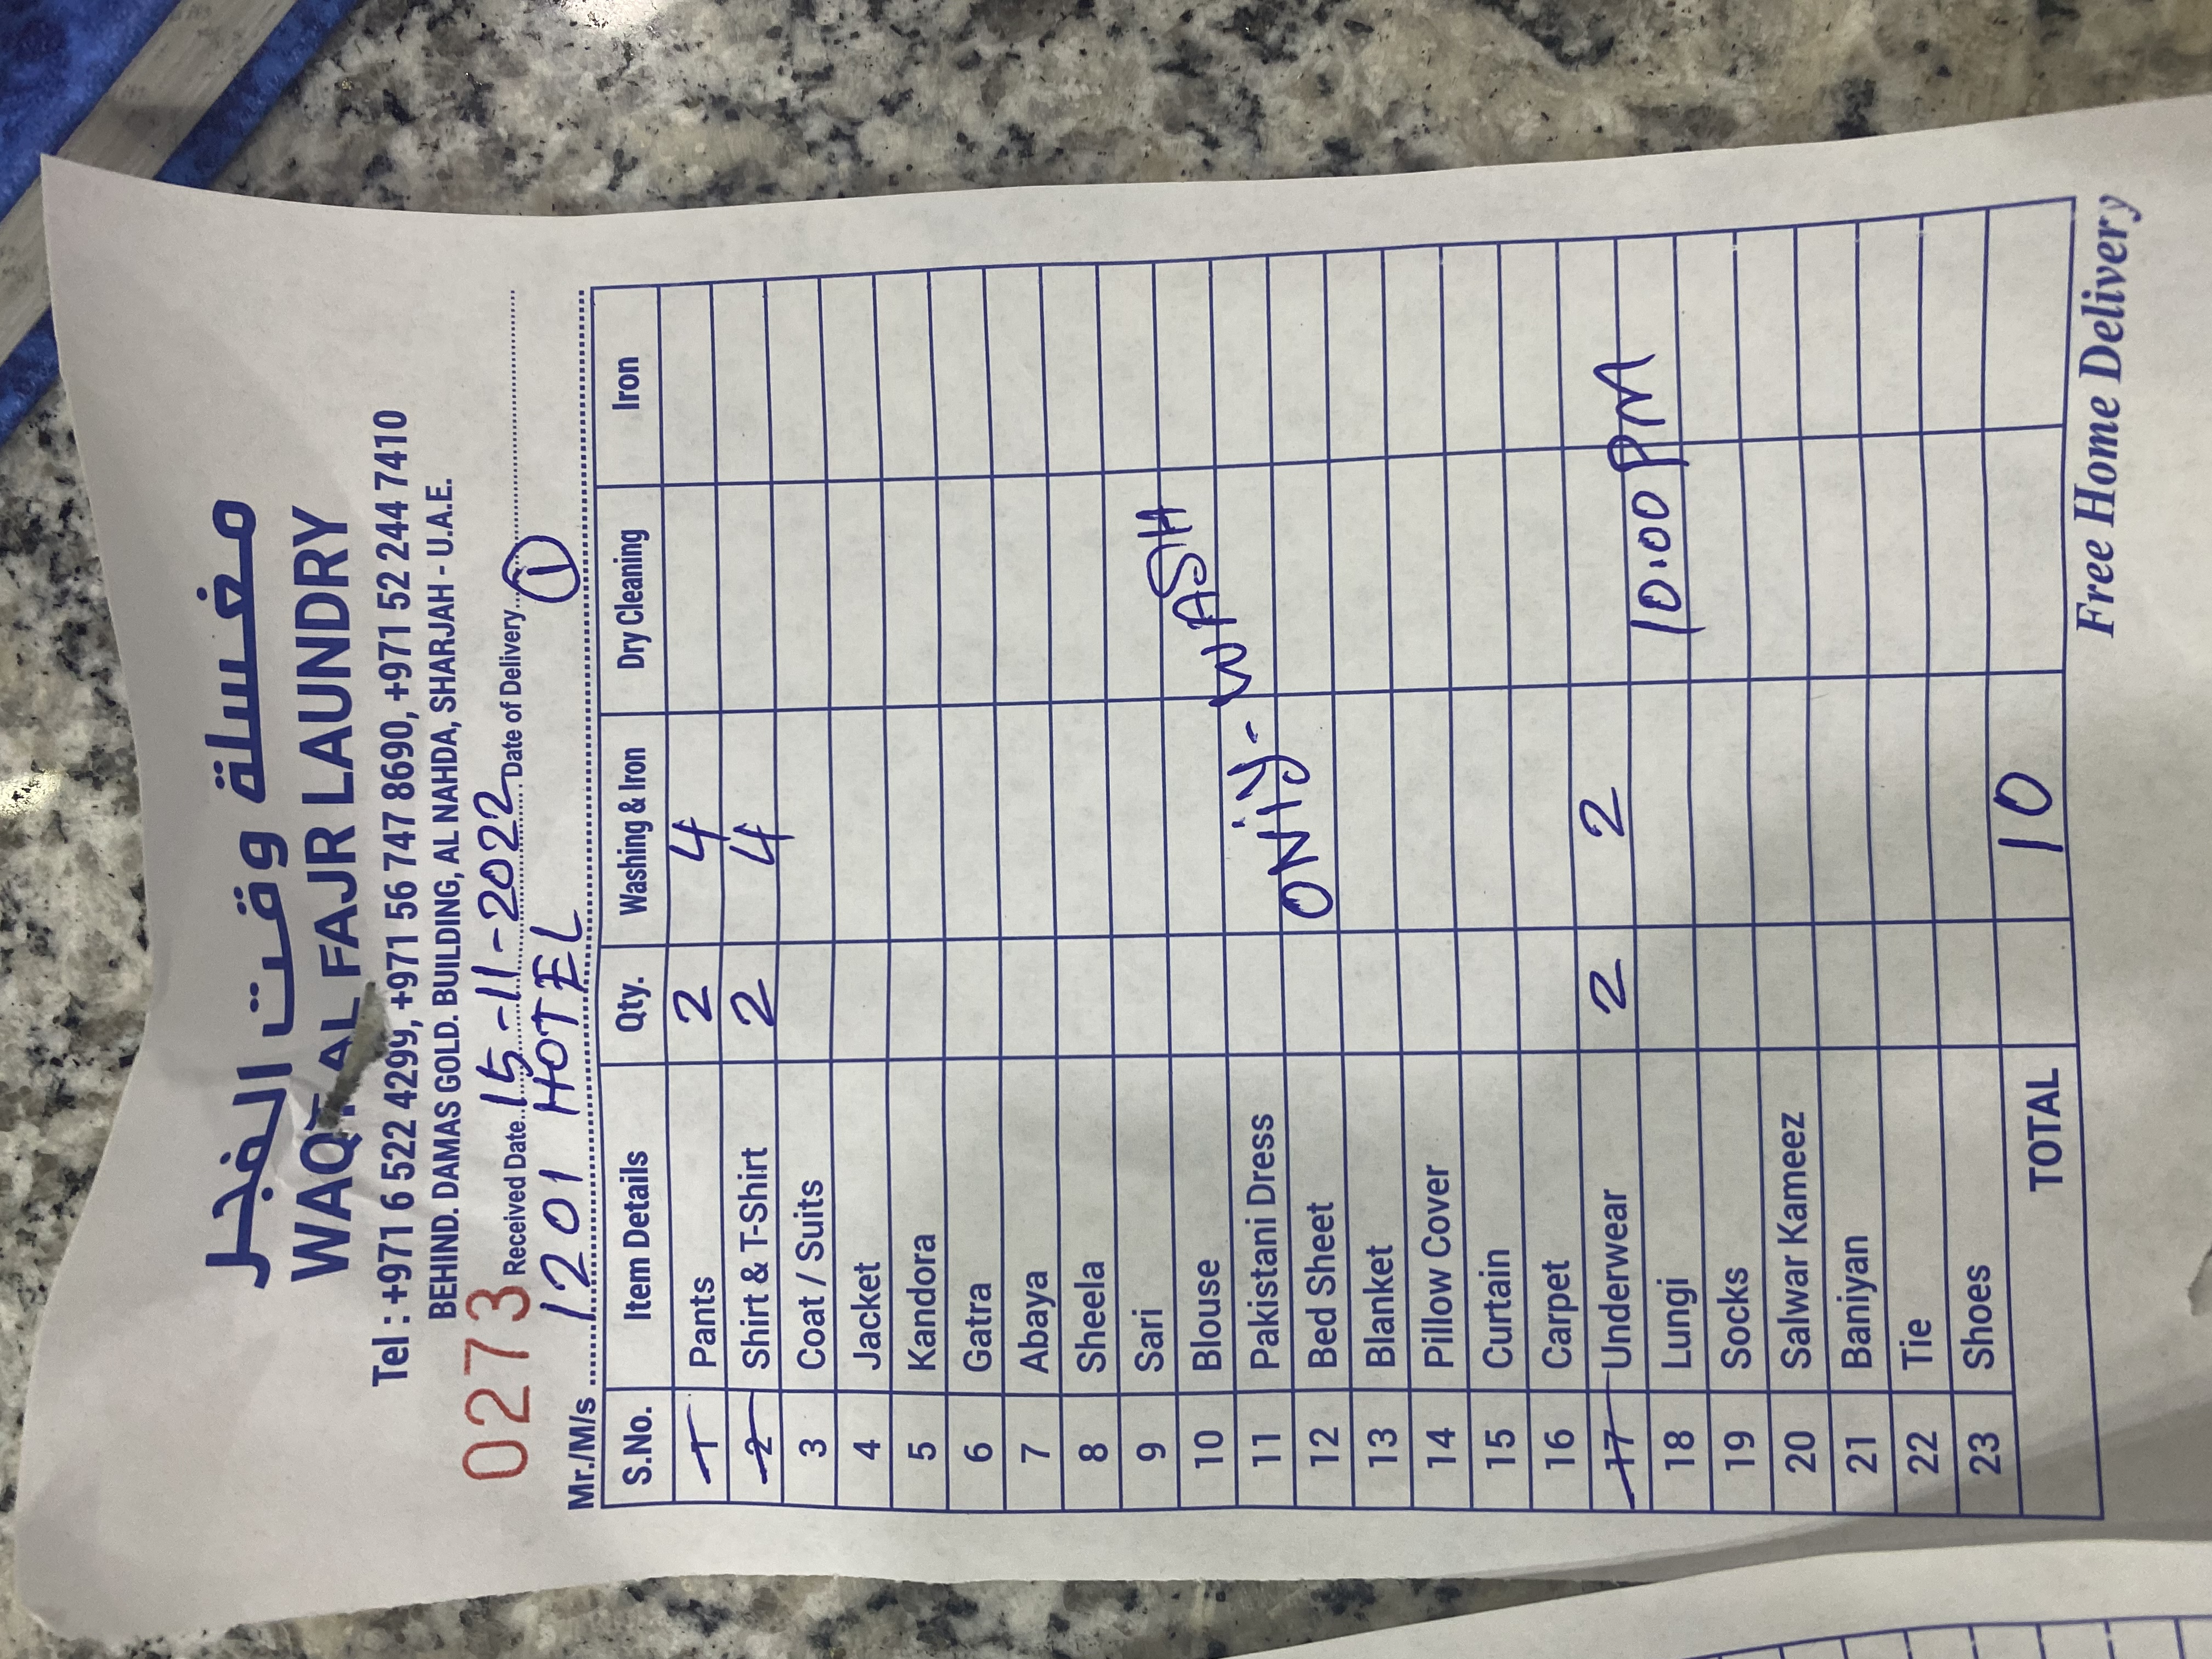 مغسلة وقت الفجر
WAQT AL FAJR LAUNDRY
Tel : +971 6 522 4299, +971 56 747 8690, +971 52 244 7410
BEHIND. DAMAS GOLD. BUILDING, AL NAHDA, SHARJAH - U.A.E.
0273 Received Date 15-11-2022 Date of Delivery
Mr./M/s 1201 HOTEL 1
S.No. Item Details Qty. Washing & Iron Dry Cleaning Iron
1 Pants 2 4
2 Shirt & T-Shirt 2 4
3 Coat / Suits
4 Jacket
5 Kandora
6 Gatra
7 Abaya
8 Sheela
9 Sari
10 Blouse
11 Pakistani Dress
ONiy- WASH
12 Bed Sheet
13 Blanket
14 Pillow Cover
15 Curtain
16 Carpet
17 Underwear 2 2
18 Lungi 10:00 PM
19 Socks
20 Salwar Kameez
21 Baniyan
22 Tie
23 Shoes
TOTAL 10
Free Home Delivery